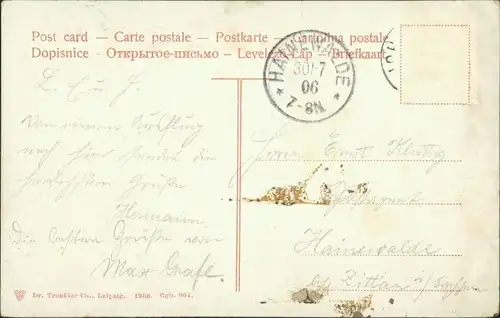 Post card — Carte postale — Postkarte — Cartolina postale
Dopisnice — Открытое-письмо — Levelező-Lap — Briefkaart
HAINEWALDE
30 7
06
7-8N.
L. E. u. J.
Von meinem Ausflug
nach hier sendet die
herzlichsten Grüße
Hermann.
Die besten Grüße von
Max Grafe.
Herrn Ernst
Hainewalde
bei Zittau i/Sachsen
Dr. Trenkler Co., Leipzig. 1906. Ggb. 004.